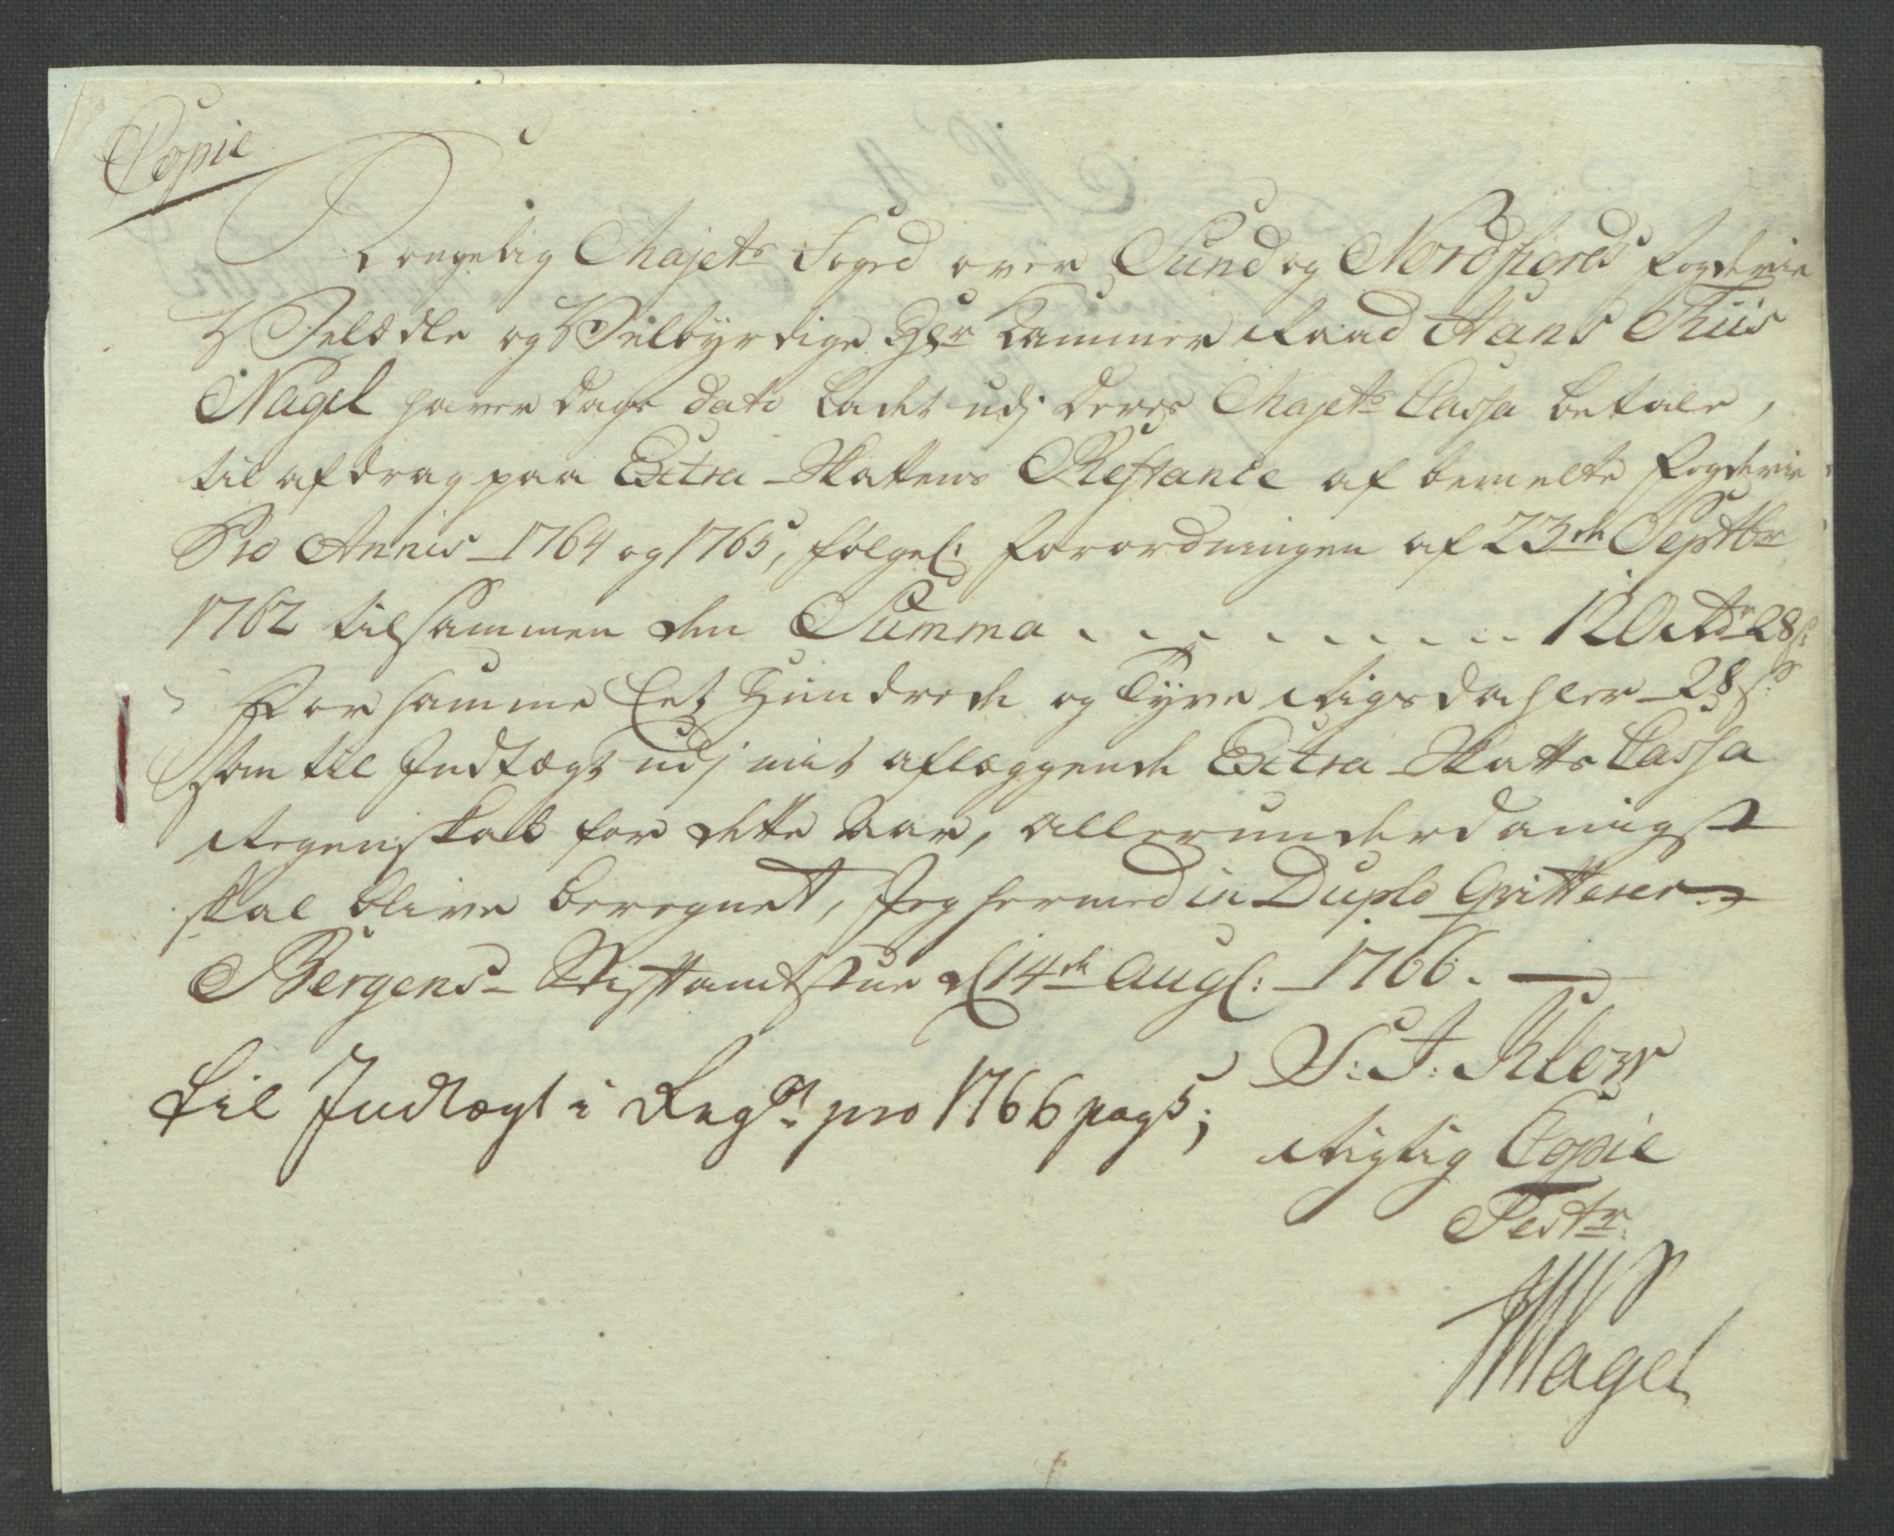 Copie
Kongelig Majets Foged over Sund og Nordfiords fogderie
Velædle og Velbyrdige Hr Kammer Raad Hans Thiis
Nagel haver dags dato ladet udj Deres Majets Cassa betale,
til afdrag paa Extra-Skattens Restance af bemelte fogderie
Pro Annis 1764 og 1765, følgel: forordningen af 23de Septbr
1762 tilsammen den Summa . . . . . . . . . 120 Rdr 28 s:
For samme Eet Hundrede og Tyve Rigsdahler 28 s:
som til Indtægt udj mit aflæggende Extra-Skatts Cassa
Regenskab for dette Aar, allerunderdanigst
skal blive beregnet, Jeg hermed in Duplo Qvitterer
Bergens Stiftamtstue d: 14de Aug: 1766.
S: J: Kløw
til Indtægt i Regst: pro 1766 pag 5;
Rigtig Copie
Test:
HTNagel